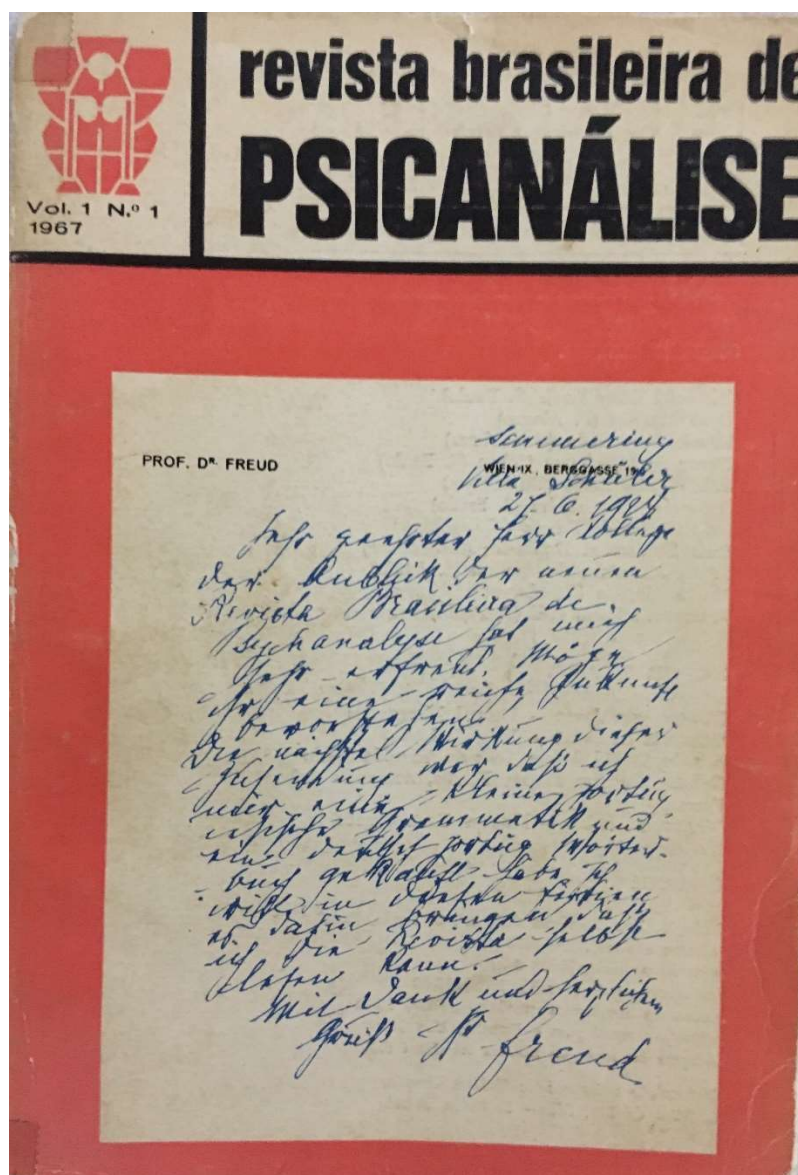 revista brasileira de
PSICANÁLISE
Vol. 1 N.º 1
1967
PROF. DR. FREUD
Semmering
WIEN IX., BERGGASSE 19
Villa Schüler
27. 6. 1928
Sehr geehrter Herr Kollege
der Anblick der neuen
Revista Brasileira de
Psychanalyse hat mich
sehr erfreut. Möge
ihr eine reiche Zukunft
bevorstehen.
Die nächste Wirkung dieser
Zusendung war daß ich
mir eine kleine portug
iesische Grammatik und
ein deutsch portug Wörter-
buch gekauft habe. Ich
will in diesen Ferien
es dahin bringen daß
ich die Revista selbst
lesen kann.
Mit Dank und herzlichem
Gruß Ihr Freud